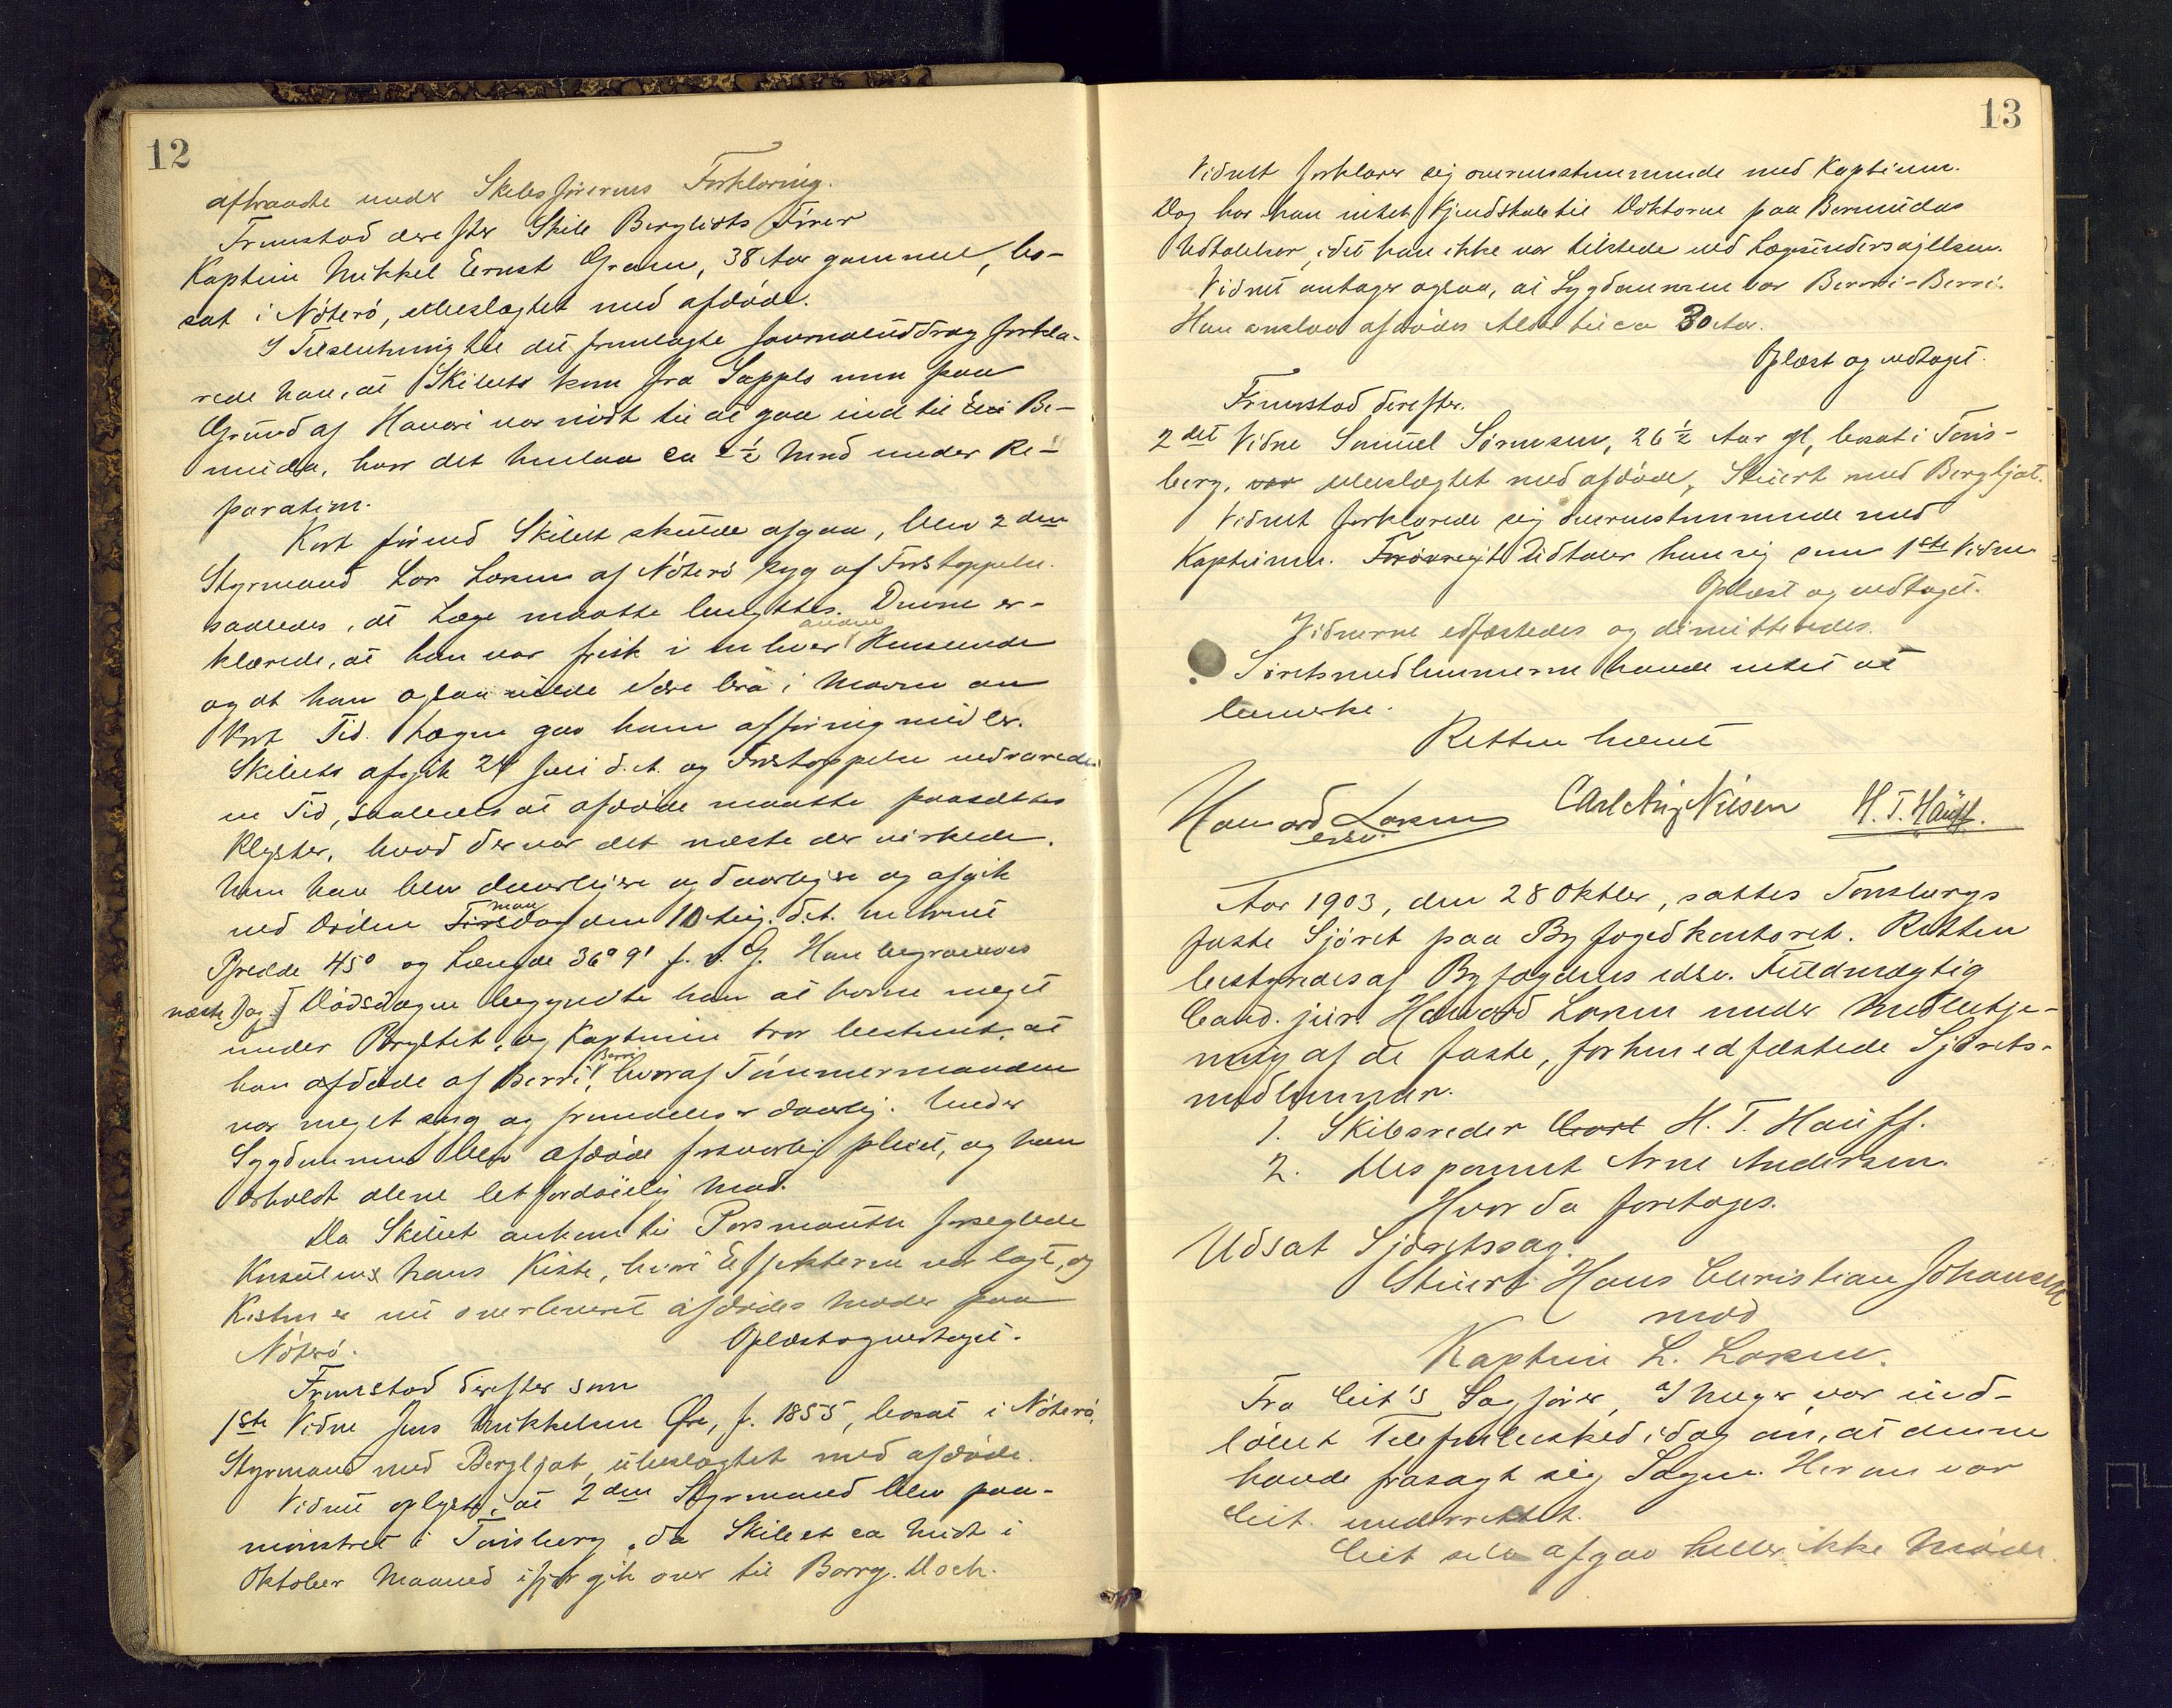 12
aftraadte under Skibsförerens Forklaring.
Fremstod derefter Skib Bergliots Förer
Kaptein Mikkel Ernst Gram, 38 Aar gammel, bo-
sat i Nöterö, ubeslægtet med afdöde.
I Tilslutning til det fremlagte Journaluddrag forkla-
rede han, at Skibets kom fra Sappelo men paa
Grund af Havari var nödt til at gaa ind til Be-
muda, hvor det henlaa ca 2½ Mnd under Re-
paration.
Kort förend Skibet skulde afgaa, blev 2den
Styrmand Lar Larsen af Nöterö syg af Forstoppelse.
saaledes, at Læge maatte benyttes. Denne er-
klærede, at han var frisk i en hver anden Henseende
og at han ogsaa vilde være bra i Maven om
kort Tid. Lægen gav ham afföringsmidler.
Skibets afgik 24 Juli d.A. og Forstoppelsen vedvarede
en Tid, saaledes at afdöde maatte paasættes
Klyster, hvad der var det næste der virkede.
Men han blev daarligere og daarligere og afgik
ved Döden Tirsdag man den 10 Aug. d.A. ombord
Bredde 45° og Længde 36° 9' f. v. G. Han begravedes
næste Dag. Dödsdagen begyndte han at hovne meget
under Brystet, og Kapteinen tror bestemt, at
han afdöde af Berri Berri, hvoraf Tömmermanden
var meget syg og fremdeles er daarlig. Under
Sygdommen blev afdöde forsvarlig pleiet, og han
erholdt alene let fordöielig Mad.
Da Skibet ankom til Porsmouth forseglede
Konsulens hans Kiste, hvori Effekterne var lagt, og
Kisten er nu overleveret afdödes Moder paa
Nöterö. Oplæst og vedtaget.
Fremstod derefter som
1ste Vidne Jens Mikkelsen Öre, f. 1855, bosat i Nöterö,
Styrmand med Bergljot, ubeslægtet med afdöde.
Vidnet oplyste, at 2den Styrmand blev paa-
mönstret i Tönsberg, da Skibet ca Midt i
Oktober Maaned ifjor gik over til Barry Doch.
13
Vidnet forklarer sig overensstemmende med Kapteinen.
Dog har han intet Kjendskab til Doktorens paa Bermudas
Udtalelser, idet han ikke var tilstede ved Lægeundersögelsen.
Vidnet antager ogsaa, at Sygdommen var Berri-Berri.
Han anslaar afdödes Alder til ca 30 Aar.
Oplæst og vedtaget.
Fremstod derefter.
2det Vidne Samuel Sörensen, 26½ Aar gl, bosat i Töns-
berg, var ubeslægtet med afdöde, Stuert med Bergljot.
Vidnet forklarede sig overensstemmende med
Kapteinen. Forövrigt Udtaler han sig som 1ste Vidne
Oplæst og vedtaget.
Vidnerne edfæstedes og dimitteredes.
Söretsmedlemmerne havde intet at
bemerke.
Retten hævet
Havard Larsen
edsv.
Carl Aug Nilsen
H. T. Hauff.
Aar 1903, den 28 Oktbr, sattes Tönsbergs
faste Sjöret paa Byfogedkontoret. Retten
bestyredes af Byfogdens edsv. Fuldmægtig
Cand. jur. Havard Larsen under Medbetje-
ning af de faste, forhen edfæstede Sjörets-
medlemmer.
1. Skibsreder H. T. Hauff.
2. Dispament Arne Andersen.
Hvor da foretoges.
Udsat Sjöretssag.
Stuert Hans Christian Johansen
mod
Kaptein L. Larsen.
Fra Cit's Sagförer, Thuger var ind-
löbet Telefonbesked idag om, at denne
havde frasagt sig Sagen. Herom var
Cit. underrettet.
Cit selv afgav heller ikke Möde.